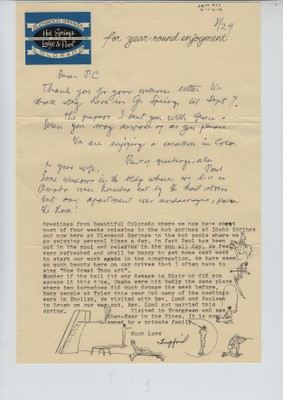 GLENWOOD SPRINGS
Hot Springs
Lodge & Pool
COLORADO
for year-round enjoyment
8/29
Dear P.C
Thank you for your welcome letter. We
shall stay here in Gl Springs till Sept 7.
the papers I sent you with
you may dispose of as you please
We are enjoying a vacation in Colo.
to your wife, Paul
Some windows in the where we live in
Omaha were knocked out by the hail storm
but our apartment was undamaged, praise
the Lord!
Greetings from beautiful Colorado where we now have spent
most of four weeks relaxing in the hot springs at Idaho Springs
and now here at Glenwood Springs in the hot pools where we
go swimming several times a day, in fact Paul has been
out in the pool and relaxter in the sun all day. We feel
very refreshed and shall be happy to get home next week
to start our work again in the congregations. We have seen
so much beauty here on our drives that I often have to
sing "How Great Thou art".
Wonder if the hail did any damage in Blair or did you
escape it this time, Omaha was hit badly the same place
where ten tornadoes did much damage the week before.
Many people at Tivoli this year but many of the meetings
were in English. We visited with Rev. Lund and Paulsen
in Brush on our way out, Rev. Lund got married this
spring. Visited in Evergreen and saw
in the Pines. It is now
owned by a private family.
Much Love
Ingfrid